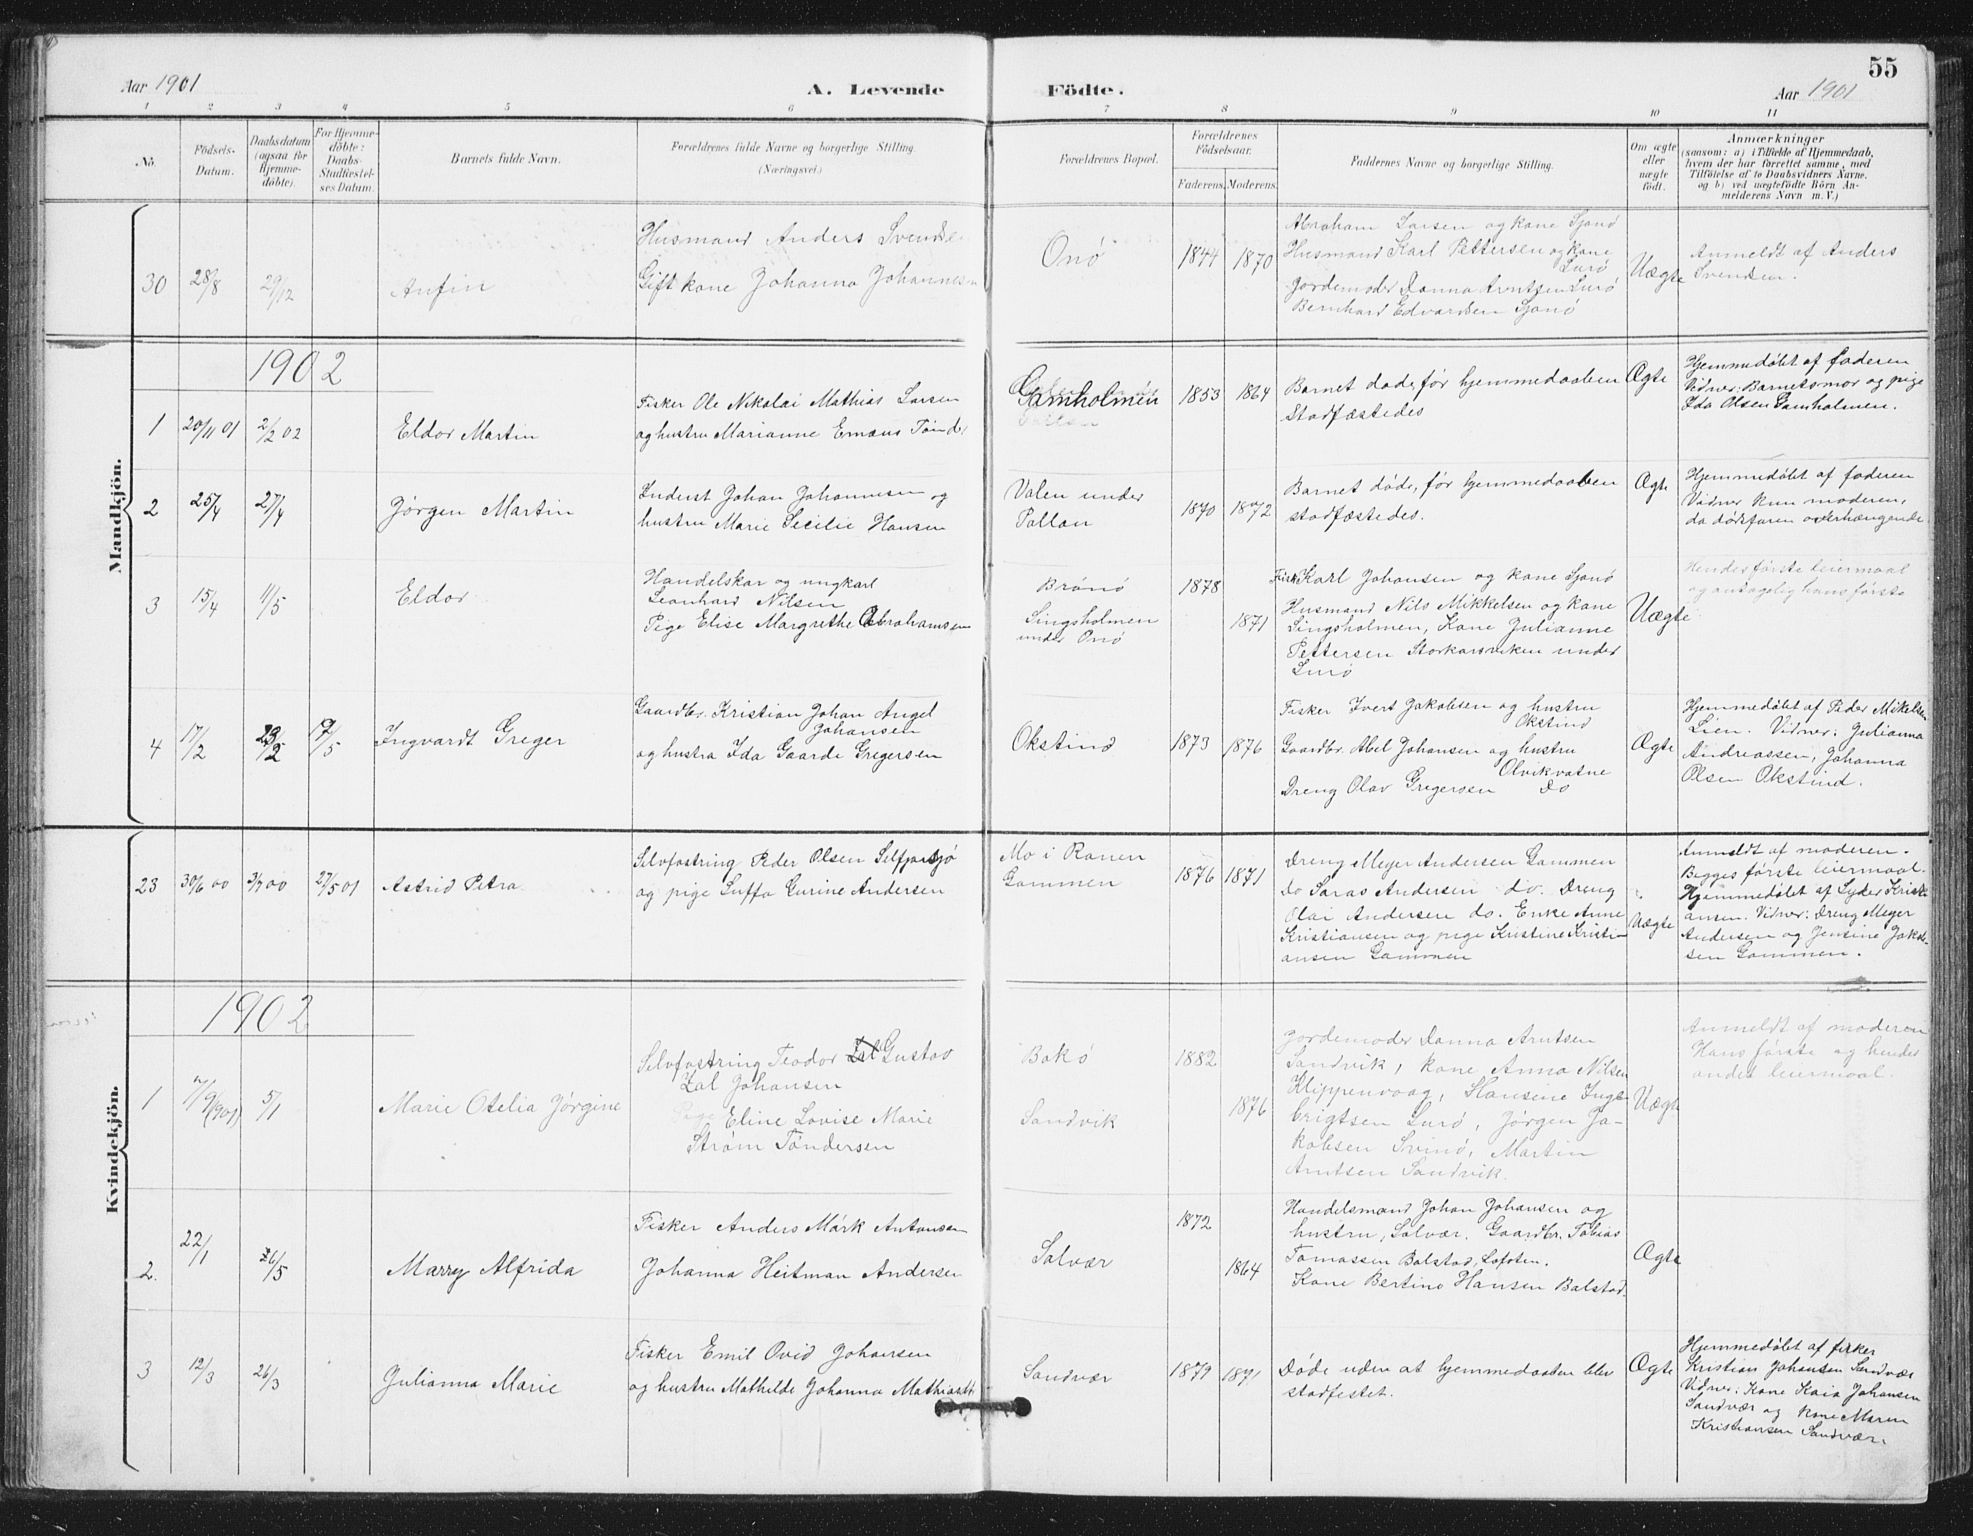 55
Aar 1901 A. Levende Födte. Aar 1901
1 2 3 4 5 6 7 8 9 10 11
No.
Födsels-
Datum.
Daabsdatum
(ogsaa för
Hjemme-
döbte).
For Hjemme-
döbte:
Daabs-
Stadfæstel-
ses Datum.
Barnets fulde Navn.
Forældrenes fulde Navne og borgerlige Stilling.
(Næringsvei.)
Forældrenes Bopæl.
Forældrenes
Födselsaar.
Faderens. Moderens.
Faddernes Navne og borgerlige Stilling.
Om ægte
eller
uægte
födt.
Anmærkninger
(saasom: a) i Tilfælde af Hjemmedaab,
hvem der har forrettet samme, med
Tilföielse af to Daabsvidners Navne,
og b) ved uægtefödte Börn An-
melderens Navn m. V.)
Mandkjön.
30 28/8 29/12 Anfin
Husmand Anders Svendse
Gift kone Johanna Johannesn
Onö
1844 1870
Abraham Larsen og kone Sjonö
Husmand Karl Pettersen og kone
Lurö
Jordemoder Danna Arntsen Lurö
Bernhard Edvardsen Sjonö
Uægte
Anmeldt af Anders
Svendsen.
1902
1 20/11 01 2/2 02 Eldor Martin
Fisker Ole Nikolai Mathias Larsen
og hustru Marianne Emæus Tönder
Gamholmen
1853 1864
Barnet døde, før hjemmedaaben
Stadfæstedes
Ægte
Hjemmedøbt af faderen
Vidner: Barnets mor og pige
Ida Olsen Gamholmen.
2 25/4 27/4 Jørgen Martin
Inderst Johan Johannesen og
hustru Marie Secilie Hansen
Valen under
Pallan
1870 1872
Barnet døde, før hjemmedaaben
stadfæstedes.
Ægte
Hjemmedøbt af faderen
Vidner kun moderen,
da dødsfaren overhængende.
3 15/4 11/5 Eldor
Handelskar og ungkarl
Leonhard Nilsen
Pige Elise Margrethe Abrahamsen
Brönö
Singsholmen
under Onö
1878
1871
Fisk. Karl Johansen og kone Sjonö
Husmand Nils Mikkelsen og kone
Singsholmen, Kone Julianne
Pettersen Storkarsviken under
Lurö
Uægte
Hendes første leiermaal
og antagelig hans første
4 17/2 23/2 19/5 Ingvardt Greger
Gaardbr. Kristian Johan Angel
Johansen
og hustru Ida Gaarde Gregersen
Okstind
1873 1876
Fisker Ivert Jakobsen og hustru
Okstind
Gaardbr. Abel Johansen og hustru
Olvikvatne
Dreng Olav Gregersen Do
Ægte
Hjemmedøbt af Peder Mikelsen
Lien. Vidner: Julianna
Andreassen, Johanna
Olsen Okstind.
Kvindekjön.
23 30/6 00 3/7 00 27/5 01 Astrid Petra
Selvfostring Peder Olsen Selfjordsjö
og pige Luffa Gurine Andersen
Mo i Ranen
Gammen
1876 1871
Dreng Meyer Andersen Gammen
do Saras Andersen do. Dreng
Olai Andersen do. Enke Anne
Kristiansen og pige Kristine Kristi-
ansen Gammen
Uægte
Anmeldt af moderen.
Begges første leiermaal.
Hjemmedøbt af Lyder Kristi-
ansen. Vidner: Dreng Meyer
Andersen og Jensine Jakob-
sen Gammen.
1902
1 7/9(901) 5/1 Marie Otelia Jørgine
Selvfostring Teodor Gustav
Zal Johansen
Pige Eline Lovise Marie
Strøm Töndersen
Bokö
Sandvik
1882
1876
Jordemoder Danna Arntsen
Sandvik, kone Anna Nilsen
Klippenvaag, Hansine Inge-
brigtsen Lurö, Jørgen Ja-
kobsen Svinö, Martin
Arntsen Sandvik.
Uægte
Anmeldt af moderen
Hans første og hendes
andet leiermaal.
2. 22/1 26/5 Marry Alfrida
Fisker Anders Mørk Antonsen
Johanna Heitman Andersen
Solvær
1872
1864
Handelsmand Johan Johansen og
hustru, Solvær. Gaardbr. Tobias
Tomassen Balstad, Lofoten.
Kone Bertine Hansen Balstad.
Ægte
3 12/3 26/3 Julianna Marie
Fisker Emil Ovid Johansen
og hustru Mathilde Johanna Mathiasdt.
Sandvær
1879 1871
Døde uden at hjemmedaaben blev
stadfestet.
Ægte
Hjemmedøbt af fisker
Kristian Johansen Sandvær
Vidner: Kone Kaia Johansen
Sandvær og kone Maren
Kristiansen Sandvær.